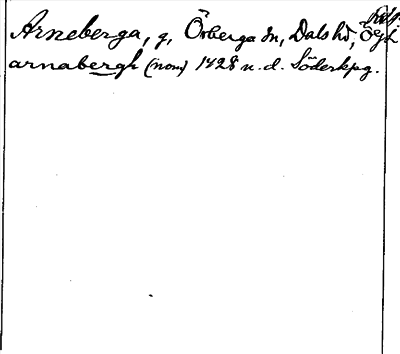 Arneberga, g, Örberga sn, Dals hd, Ögl
arnabergh (nom) 1428 n. d. Söderkpg.